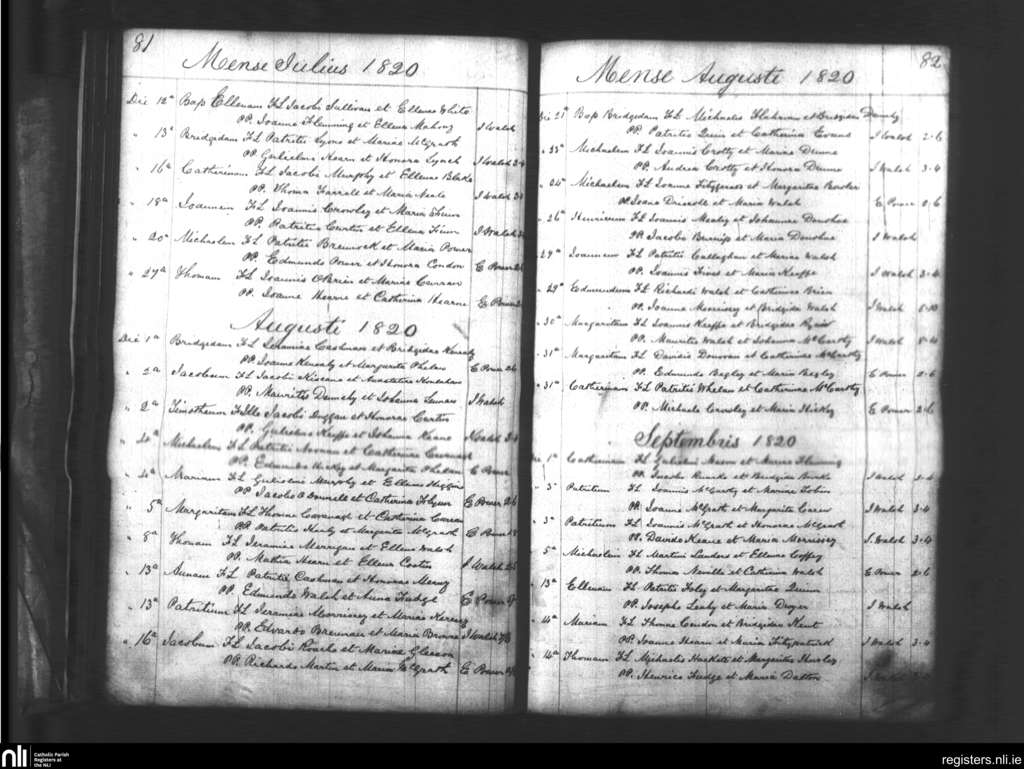 81
Mense Julius 1820
Die 12a Bap Ellenam FL Jacobi Sullivan et Ellenae White
PP. Joanne Flemming et Ellena Mahony I Walsh
" 13a Bridgedam FL Patritii Lyons et Mariae McGrath
PP. Gulielmo Hearn et Honora Lynch I Walsh 3-4
" 16a Catherinam FL Jacobi Murphy et Ellenae Blake
PP. Thoma Farrell et Maria Neale I Walsh
" 18a Joannem FL Joannis Crowley et Maria
PP. Patritio Curtin et Ellena I Walsh
" 20a Michaelem FL Patritii Brennock et Maria Power
PP. Edmundo Power et Honora Condon E Power
" 27a Thomam FL Joannis OBrien et Mariae Curran
PP. Joanne Hearne et Catherina Hearne E Power
Augusti 1820
Die 1a Bridgedam FL Jeramiae Cashman et Bridgidae Keneally
PP. Joanne Keneally et Margareta Phelan E Power
" 2a Jacobum FL Jacobi et
PP. Mauritio et Johanna I Walsh
" 2a Timotheum Jacobi Duggan et Honorae Curtin
PP. Gulielmo Keeffe et Johanna Keane
" 4a Michaelem FL Patritii Noonan et Catherinae
PP. Edmundo Hickey et Margarita Phelan E Power
" 4a Mariam FL Gulielmi Murphy et Ellenae Higgins
PP. Jacobo O Donnell et Catherina E Power 2-6
" 5a Margaritam FL Thomae Cavanagh et Catherinae
PP. Patritio et Margarita McGrath E Power
" 8a Thomam FL Jeramiae Merrigan et Ellenae Walsh
PP. Mathia Hearn et Ellena I Walsh
" 13a Annam FL Patritii Cashman et Honorae
PP. Edmundo Walsh et Anna Fudge E Power
" 13a Patritium FL Jeramiae Morrissey et Mariae
PP. Edvardo Brennan et Maria Browne I Walsh
" 16a Jacobum FL Jacobi Roache et Mariae Gleeson
PP. Richardo Martin et Maria McGrath E Power
82
Mense Augusti 1820
Die 21a Bap Bridgedam FL Michaelis et Bridgidae
PP. Patritio Quin et Catherina Evans I Walsh 2-6
Michaelem FL Joannis Crotty et Mariae Dunne
PP. Andrea Crotty et Honora Dunne I Walsh 3-4
" 24a Michaelem FL Joanne Fitzgerald et Margaritae Bowler
PP. Joane Driscoll et Maria Walsh E Power
" 26a Henricum FL Joannis Mealy et Johannae Donohue
PP. Jacobo et Maria Donohue I Walsh
" 27a Joannem FL Patritii Callaghan et Mariae Walsh
PP. Joannis et Maria Keeffe I Walsh 3-4
" 29a Edmundum FL Richardi Walsh et Catherinae Brien
PP. Joanne Morrissey et Bridgida Walsh I Walsh
" 30a Margaritam FL Joannis Keeffe et Bridgidae
PP. Mauritio Walsh et Johanna McCarthy I Walsh
" 31a Margaritam FL Davidis Donovan et Catherinae McCarthy
PP. Edmundo Bagley et Maria Bagley E Power 2-6
" 31a Catherinam FL Patritii Whelan et Catherinae McCarthy
PP. Michaele Crowley et Maria Hickey E Power 2-6
Septembris 1820
Die 1a Catherinam FL Gulielmi Mason et Mariae Flemming
PP. Jacobo et Bridgida Burke I Walsh
" 3a Patritium FL Joannis McCarthy et Mariae Tobin
PP. Joanne McGrath et Margarita Carew I Walsh 3-4
" 3a Patritium FL Joannis McGrath et Honorae McGrath
PP. Davido Keane et Maria Morrissey I. Walsh 3-4
" 5a Michaelem FL Martini Landers et Ellenae Coffey
PP. Thoma Neville et Catherina Walsh E Power 2-6
" 13a Ellenam FL Patritii Foley et Margaritae Quinn
PP. Josepho Leahy et Maria Dwyer I Walsh
" 14a Mariam FL Thomae Condon et Bridgidae Hunt
PP. Joanne Hearn et Maria Fitzpatrick I Walsh 3-4
" 14a Thomam FL Michaelis Hackett et Margaritae
PP. Henrico Fudge et Maria Dalton I Walsh
nli
Catholic Parish
Registers at
the NLI
registers.nli.ie